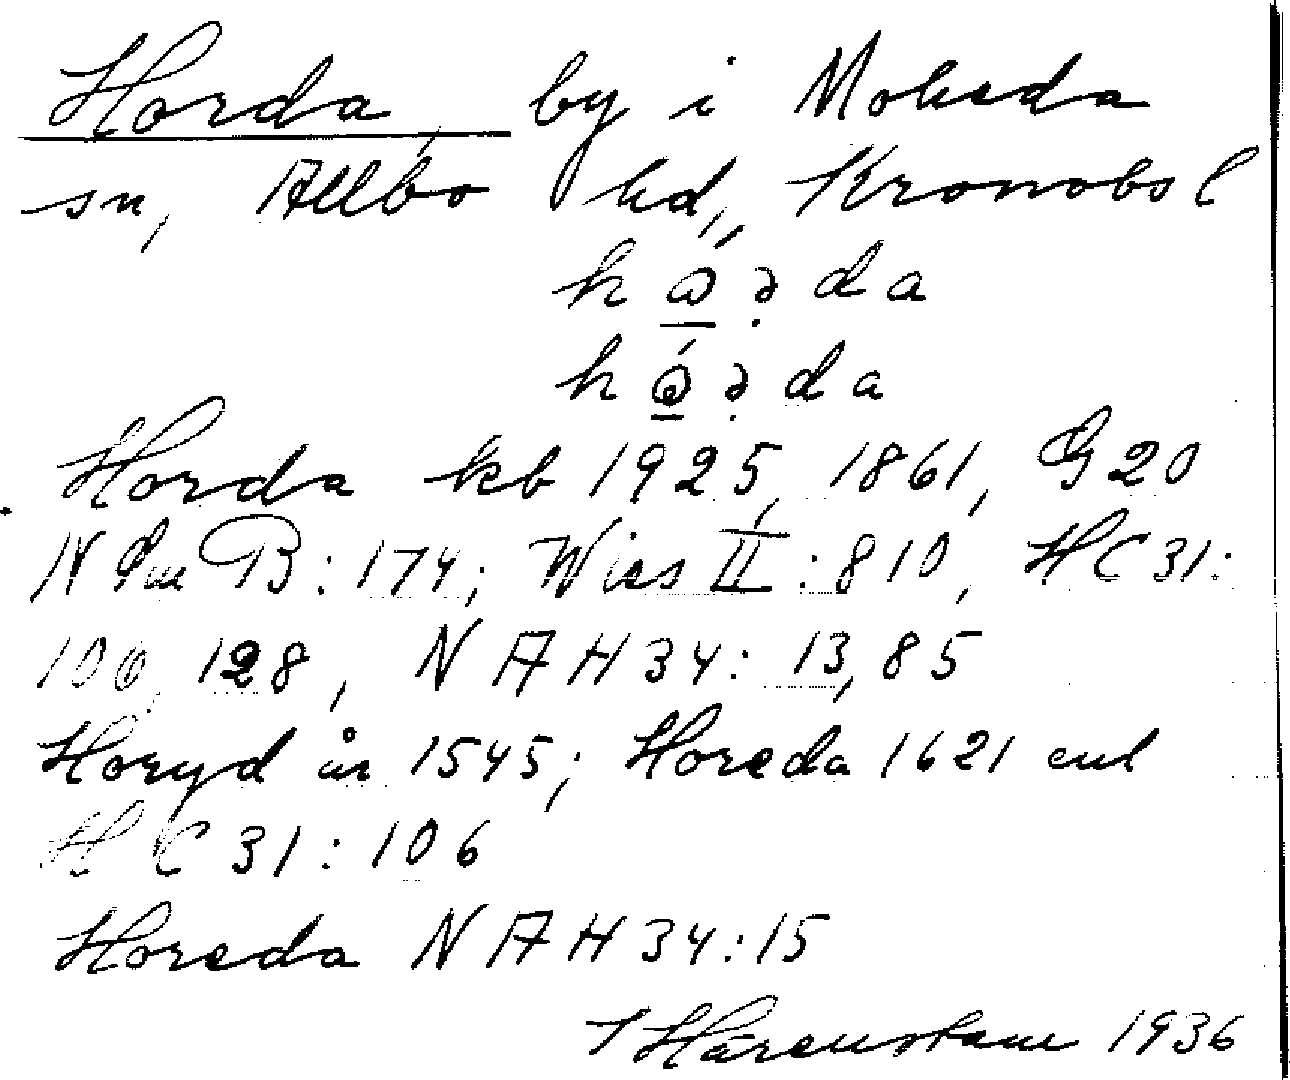 Horda by i Moheda
sn, Allbo hd, Kronobs l
da
da
Horda kb 1925, 1861, G20
B:174; Wies II:810, HC31:
106, 128, NAH34: 13, 85
Horyd år 1545; Horeda 1621 enl
HC31:106
Horeda NAH34:15
Hårenstam 1936